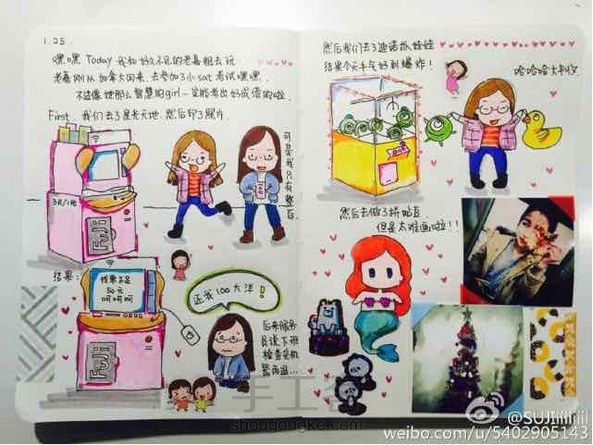 1.25.
嘿嘿 Today 我和好久不见的老嘉姐去玩
老嘉刚从加拿大回来,去参加了小sat考试嘿嘿
不过像她那么智慧的girl一定能考出好成绩的啦.
First, 我们去了星光天地,然后印了照片
可是我只有整百
3元/1张
结果:
找零不足
50元
呵呵呵
还我100大洋!
后来服务员说下班检查交机器再退……
然后我们去了迪诺抓娃娃
结果今天手气好到爆炸!
哈哈哈大丰收
然后去做了拼贴豆
但是太难画啦!!
手工客
shougongke.com
@SUJIiiiiiiii
weibo.com/u/5402905143